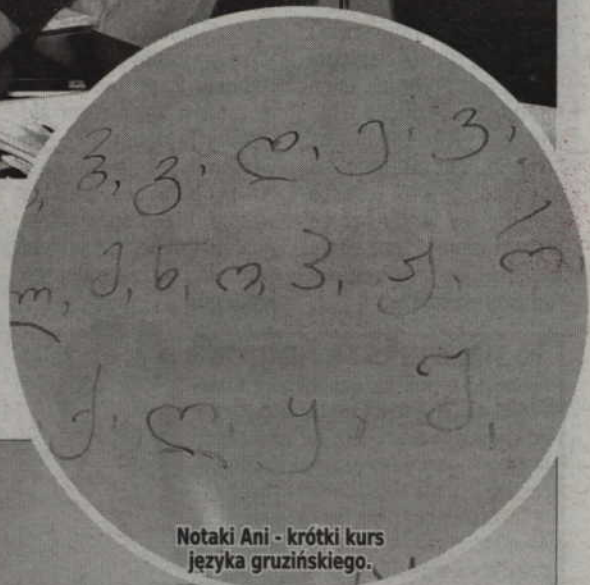 ბ, გ, დ, ე, ვ,
ლ, მ, ნ, ო, პ, ჟ, რ
ქ, ღ, ყ, შ,
Notaki Ani - krótki kurs
języka gruzińskiego.